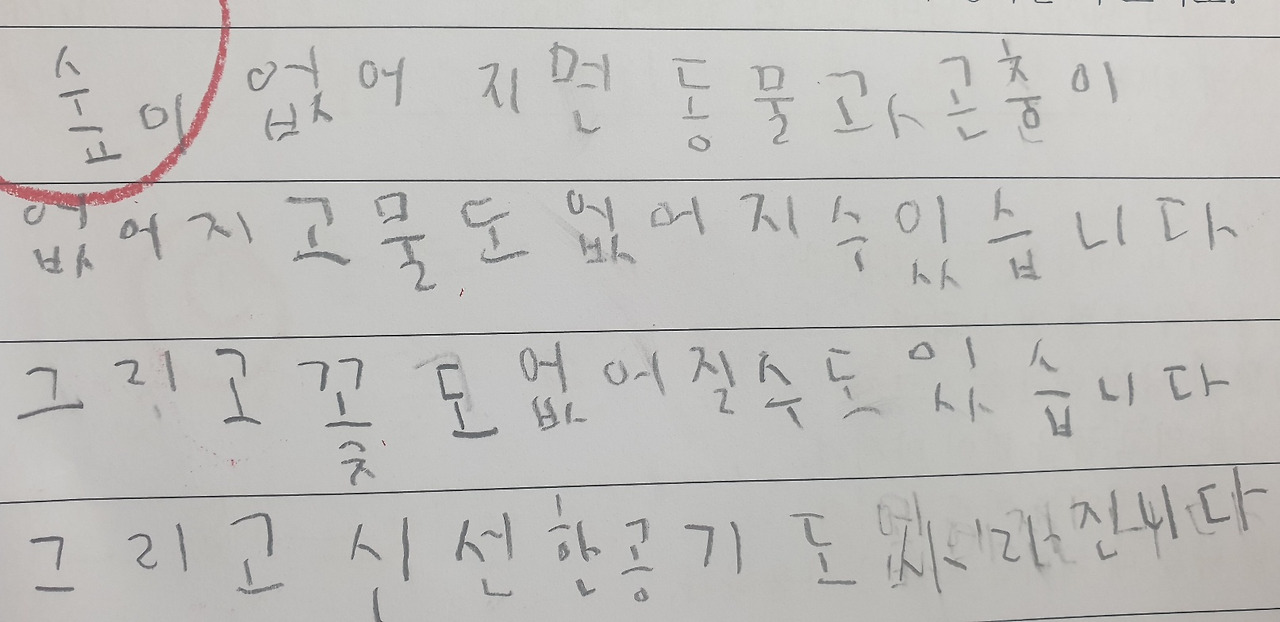 숲이 없어지면 동물과 곤충이
없어지고 물도 없어지수있습니다
그리고 꽃도 없어질수도 있습니다
그리고 신선한공기도